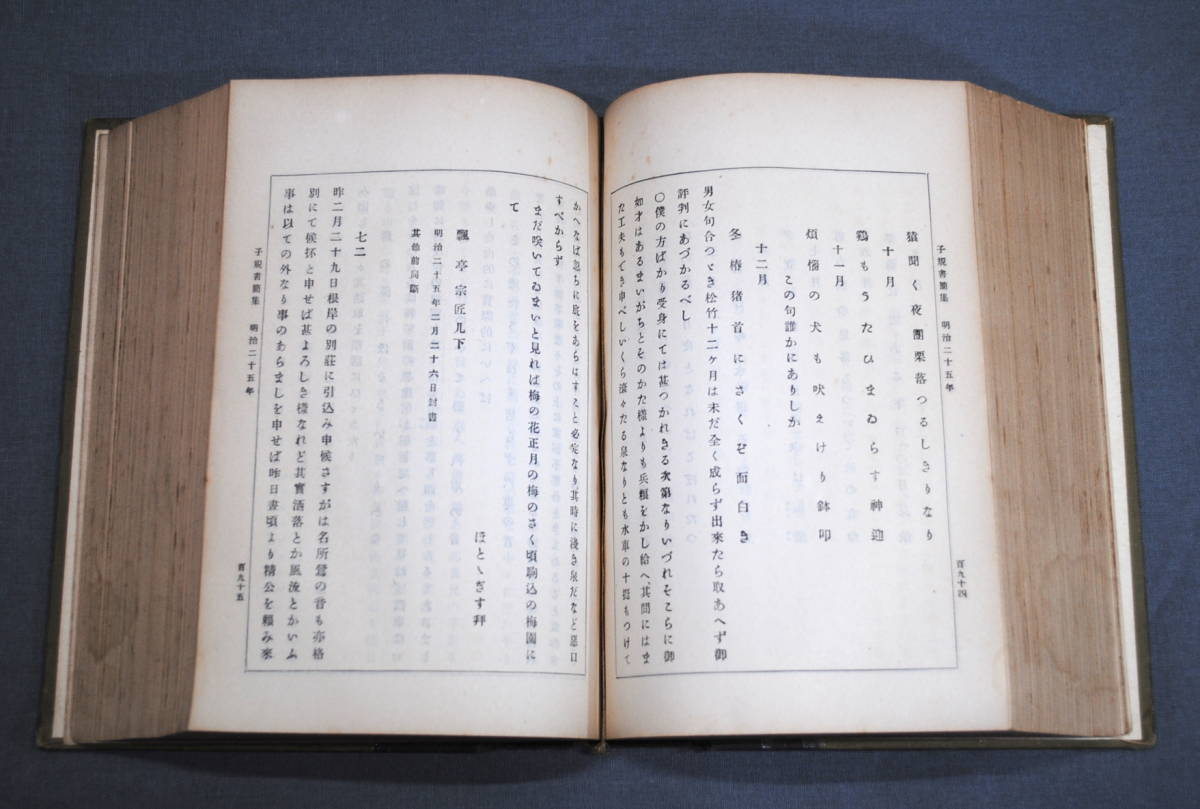 子規書簡集　明治二十五年
猿聞く夜團栗落つるしきりなり
十月
鶏もうたひまゐらす神迎
十一月
煩惱の犬も吠えけり鉢叩
この句誰かにありしか
十二月
冬椿猪首にさくぞ面白き
男女句合つゞき松竹十二ヶ月は未だ全く成らず出來たら取あへず御
評判にあづかるべし
〇僕の方ばかり受身にては甚つかれきる次第なりいづれそこらに御
如才はあるまいがちとそのかた樣よりも兵糧をかし給へ、其間にはま
た工夫もでき申べしいくら滾々たる泉なりとも水車の十挺もつけて
百九十四
かへなば忽ちに底をあらはすこと必定なり、其時に淺き泉だなど惡口
すべからず
まだ咲いてゐまいと見れば梅の花正月の梅のさく頃駒込の梅園に
て
ほとゝぎす拜
飄亭宗匠几下
明治二十五年二月二十六日封書
其他前同斷
七二
昨二月二十九日根岸の別莊に引込み申候さすがは名所鶯の音も亦格
別にて候抔と申せば甚よろしき樣なれど其實洒落とか風流とかいふ
事は以ての外なり事のあらましを申せば昨日晝頃より精公を頼み來
子規書簡集　明治二十五年
百九十五